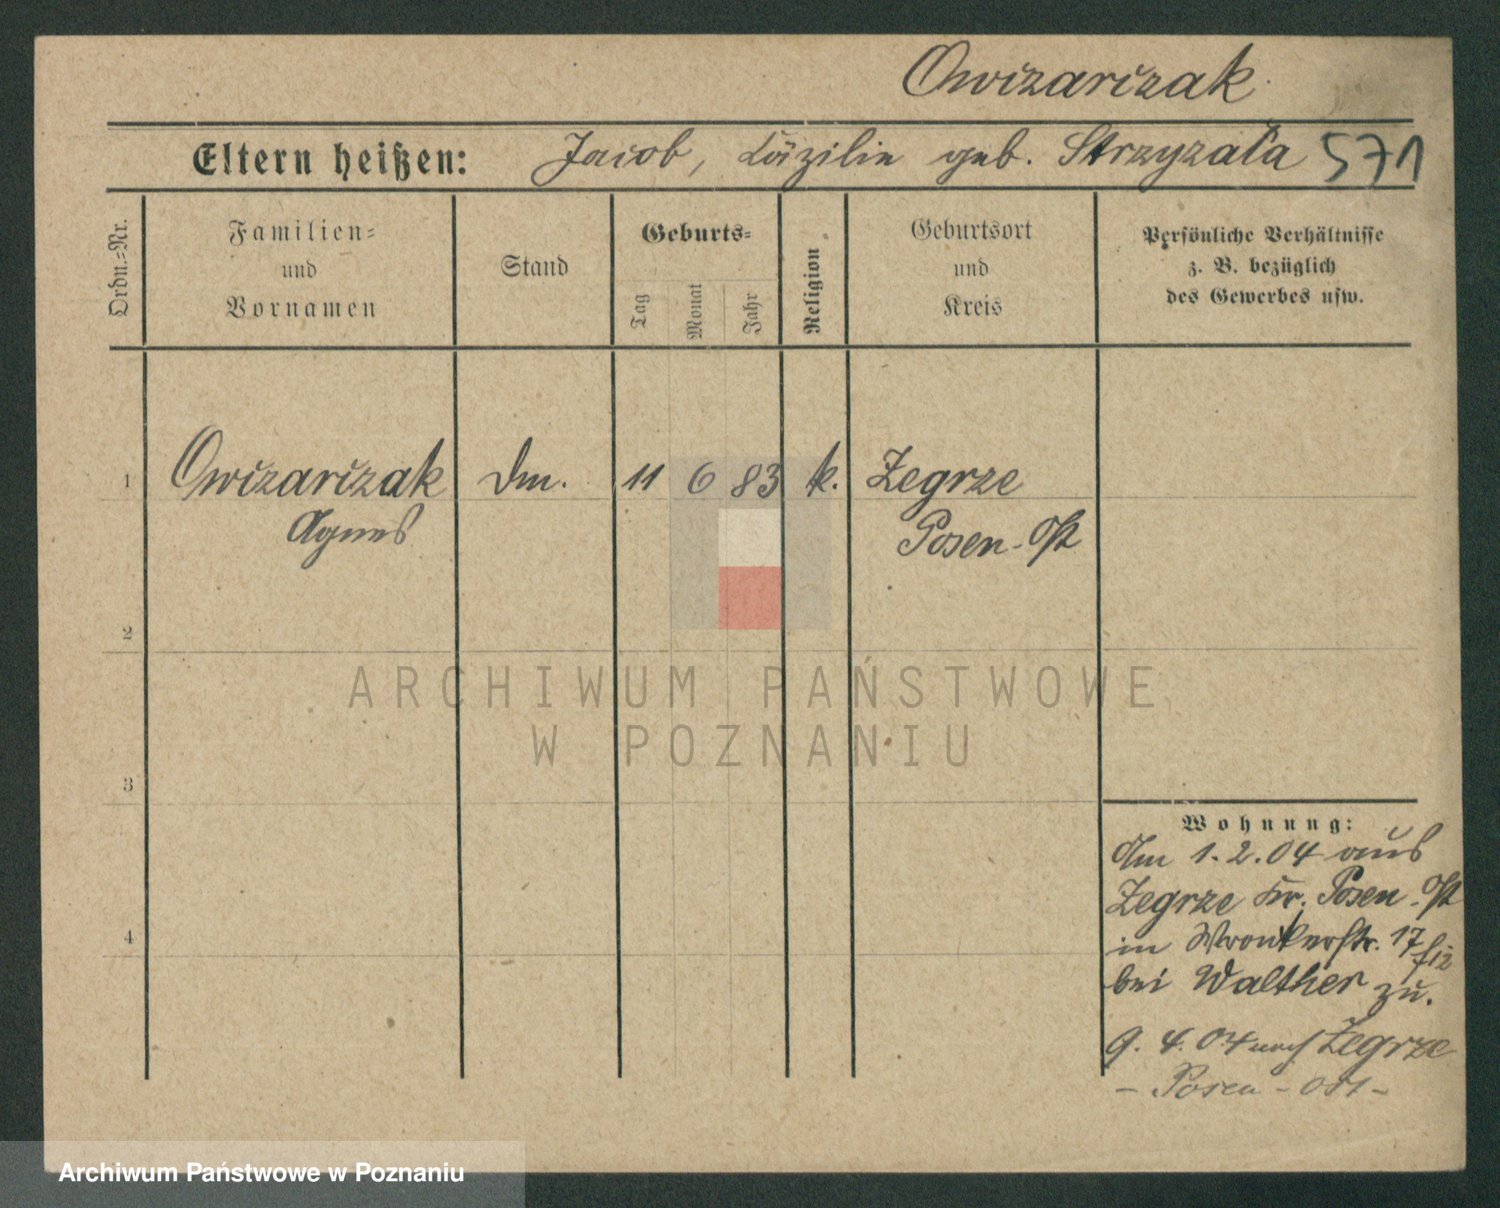 Owczarczak
Eltern heißen: Jacob, Cäzilie geb. Strzyzała 571
Ordn.-Nr.
Familien-
und
Vornamen
Stand
Geburts-
Tag
Monat
Jahr
Religion
Geburtsort
und
Kreis
Persönliche Verhältnisse
z. B. bezüglich
des Gewerbes usw.
1 Owczarczak Dm. 11 6 83 k. Zegrze
Agnes Posen-Ost
2
3
4
Wohnung:
Am 1.2.04 aus
Zegrze Kr. Posen-Ost
in Wronkerstr. 17
bei Walther zu.
9. 4. 04 nach Zegrze
- Posen - Ost -
ARCHIWUM PAŃSTWOWE
W POZNANIU
Archiwum Państwowe w Poznaniu